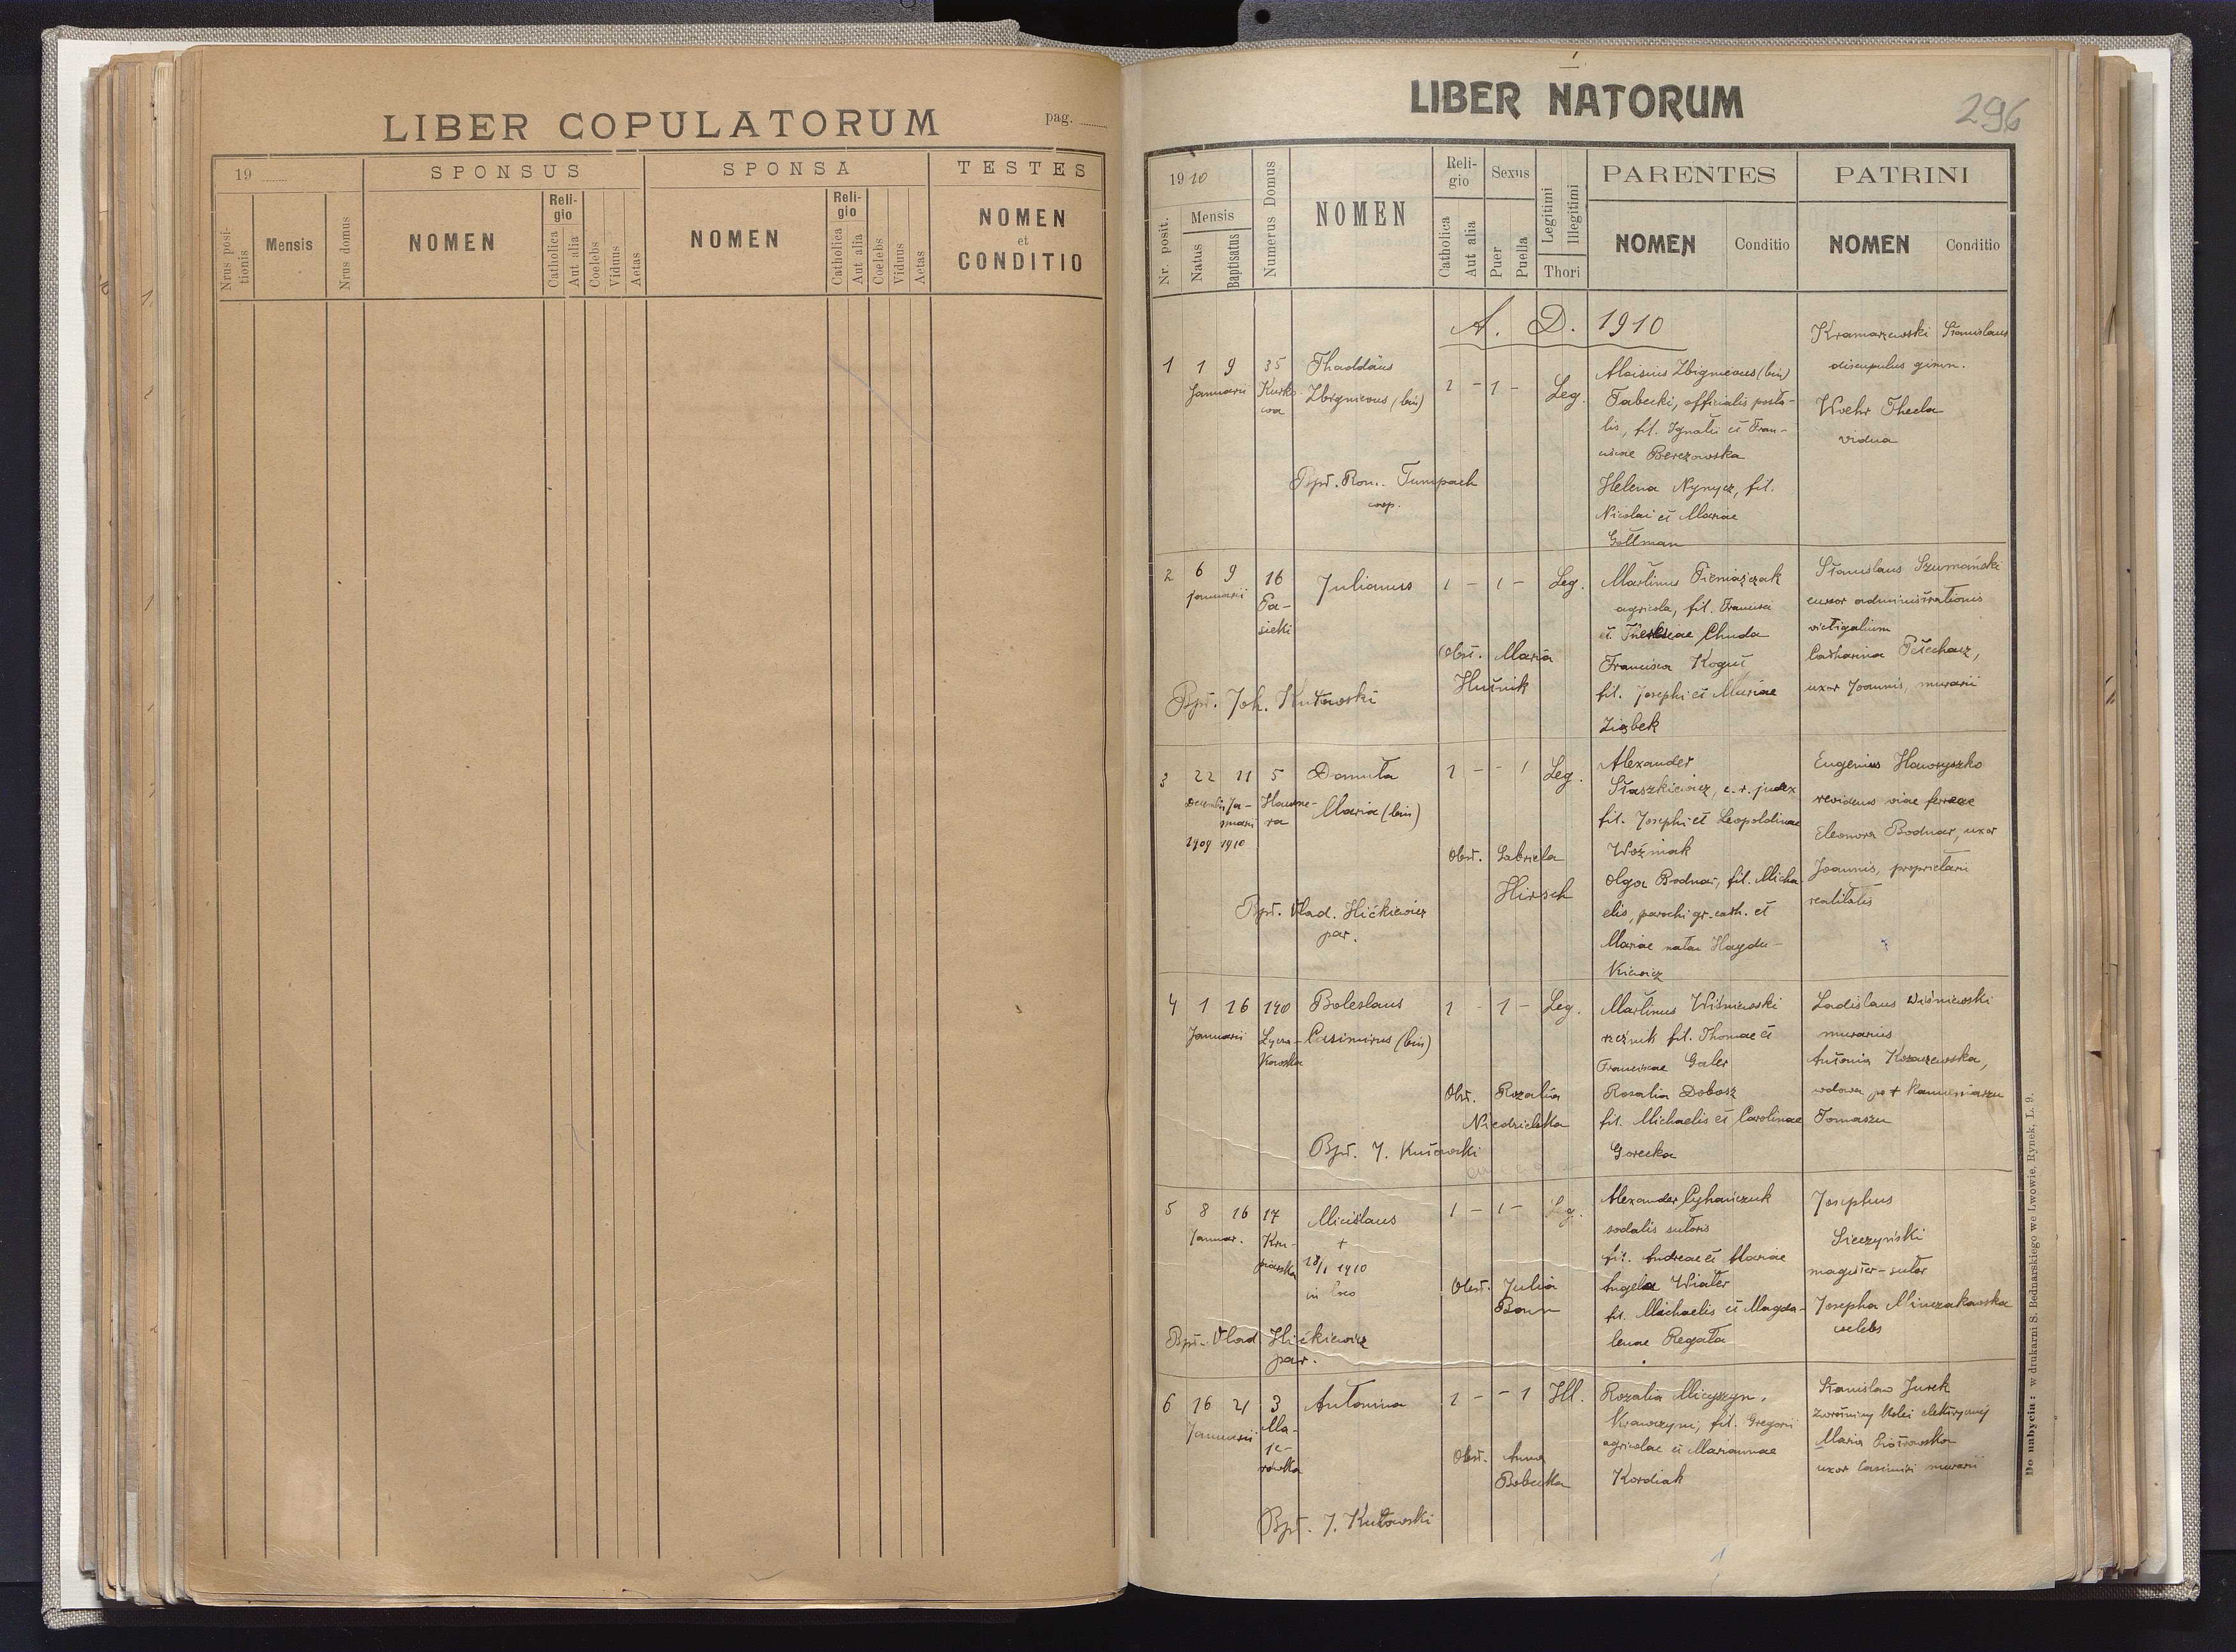 LIBER COPULATORUM
pag.
19
SPONSUS
SPONSA
TESTES
Nrus posi-
tionis
Mensis
Nrus domus
NOMEN
Reli-
gio
Catholica
Aut alia
Coelebs
Viduus
Aetas
NOMEN
Reli-
gio
Catholica
Aut alia
Coelebs
Viduus
Aetas
NOMEN
et
CONDITIO
LIBER NATORUM
296
1910
Nr. posit.
Mensis
Natus
Baptisatus
Numerus Domus
NOMEN
Reli-
gio
Catholica
Aut alia
Sexus
Puer
Puella
Legitimi
Illegitimi
Thori
PARENTES
NOMEN
Conditio
PATRINI
NOMEN
Conditio
A. D. 1910
1
1 9
Januarii
35
Kurko-
wa
Thaddäus
Zbignieous (bin)
1 - 1 -
Leg.
Bpt. Rom. Tumpach
coop.
Aloisius Zbignieous (bin)
Tabecki, officialis posta-
lis, fil. Ignatii et Fran-
ciscae Berezowska
Helena Nynycz, fil.
Nicolai et Mariae
Gottman
Kramarzewski Stanislaus
discupulus gimn.
Woehr Thecla
vidua
2
6 9
Januarii
16
Pa-
sieki
Julianus
1 - 1 -
Leg.
Obst. Maria
Hutnik
Bpt. Joh. Kutowski
Martinus Pieniążczak
agricola, fil. Francisci
et Theresiae Chuda
Francisca Kogut
fil. Josephi et Mariae
Ziąbek
Stanislaus Szumański
cursor administrationis
victigalium
Catharina Pelechacz,
uxor Joannis, murarii
3
22 11
Decembris Ja-
nuarii
1909 1910
5
Hausne-
ra
Danuta
Maria (bin)
1 - - 1
Leg.
Obst. Gabriela
Hirsch
Bpt. Vlad. Hićkiewicz
par.
Alexander
Staszkiewicz, c. r. judex
fil. Josephi et Leopoldinae
Woźniak
Olga Bodnar, fil. Micha-
elis, parochi gr. cath. et
Mariae natae Haydu-
kiewicz
Eugenius Haworyszko
revidens viae ferreae
Eleonora Bodnar, uxor
Joannis, proprietarii
realitatis
4
1 16
Januarii
140
Łycza-
kowska
Boleslaus
Casimirus (bin)
1 - 1 -
Leg.
Obst. Rozalia
Niedzielska
Bpt. J. Kutowski
Martinus Wiśniewski
rzeźnik fil. Thomae et
Franciscae Galer
Rosalia Dobosz
fil. Michaelis et Carolinae
Gorecka
Ladislaus Wiśniewski
murarius
Antonia Kozaczewska,
wdowa po + kamieniarzu
Tomaszu
5
8 16
Januar.
17
Kru-
piarska
Micislaus
+
18/1 1910
in loco
1 - 1 -
Leg.
Obst. Julia
Baun
Bpt. Vlad Hićkiewicz
par.
Alexander Cyhańczuk
sodalis sutoris
fil. Andreae et Mariae
Angela Wiater
fil. Michaelis et Magda-
lenae Regata
Josephus
Sieczyński
magister-sutor
Josepha Minczakowska
celebs
6
16 21
Januarii
3
Ma-
je-
rówka
Antonina
1 - - 1
Ill.
Obst. Anna
Bobecka
Bpt. J. Kutowski
Rozalia Micyszyn,
Krawczyni, fil. Gregorii
agricolae et Mariannae
Kordiak
Stanislaw Jurek
Zwrotniczy kolei elektrycznej
Maria Piotrowska
uxor Casimiri murarii
Do nabycia: w drukarni S. Bednarskiego we Lwowie, Rynek, L. 9.